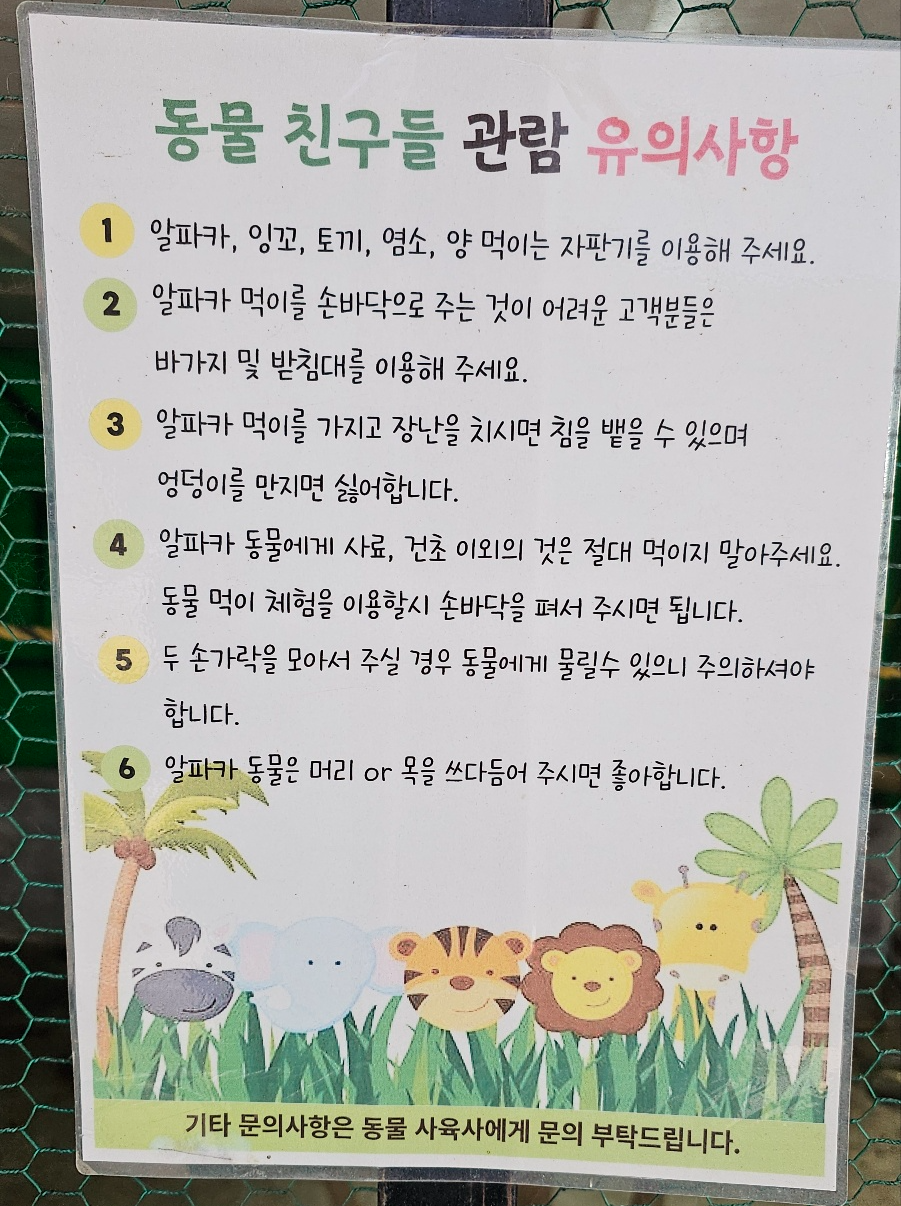 동물 친구들 관람 유의사항
1 알파카, 잉꼬, 토끼, 염소, 양 먹이는 자판기를 이용해 주세요.
2 알파카 먹이를 손바닥으로 주는 것이 어려운 고객분들은
바가지 및 받침대를 이용해 주세요.
3 알파카 먹이를 가지고 장난을 치시면 침을 뱉을 수 있으며
엉덩이를 만지면 싫어합니다.
4 알파카 동물에게 사료, 건초 이외의 것은 절대 먹이지 말아주세요.
동물 먹이 체험을 이용할시 손바닥을 펴서 주시면 됩니다.
5 두 손가락을 모아서 주실 경우 동물에게 물릴수 있으니 주의하셔야
합니다.
6 알파카 동물은 머리 or 목을 쓰다듬어 주시면 좋아합니다.
기타 문의사항은 동물 사육사에게 문의 부탁드립니다.